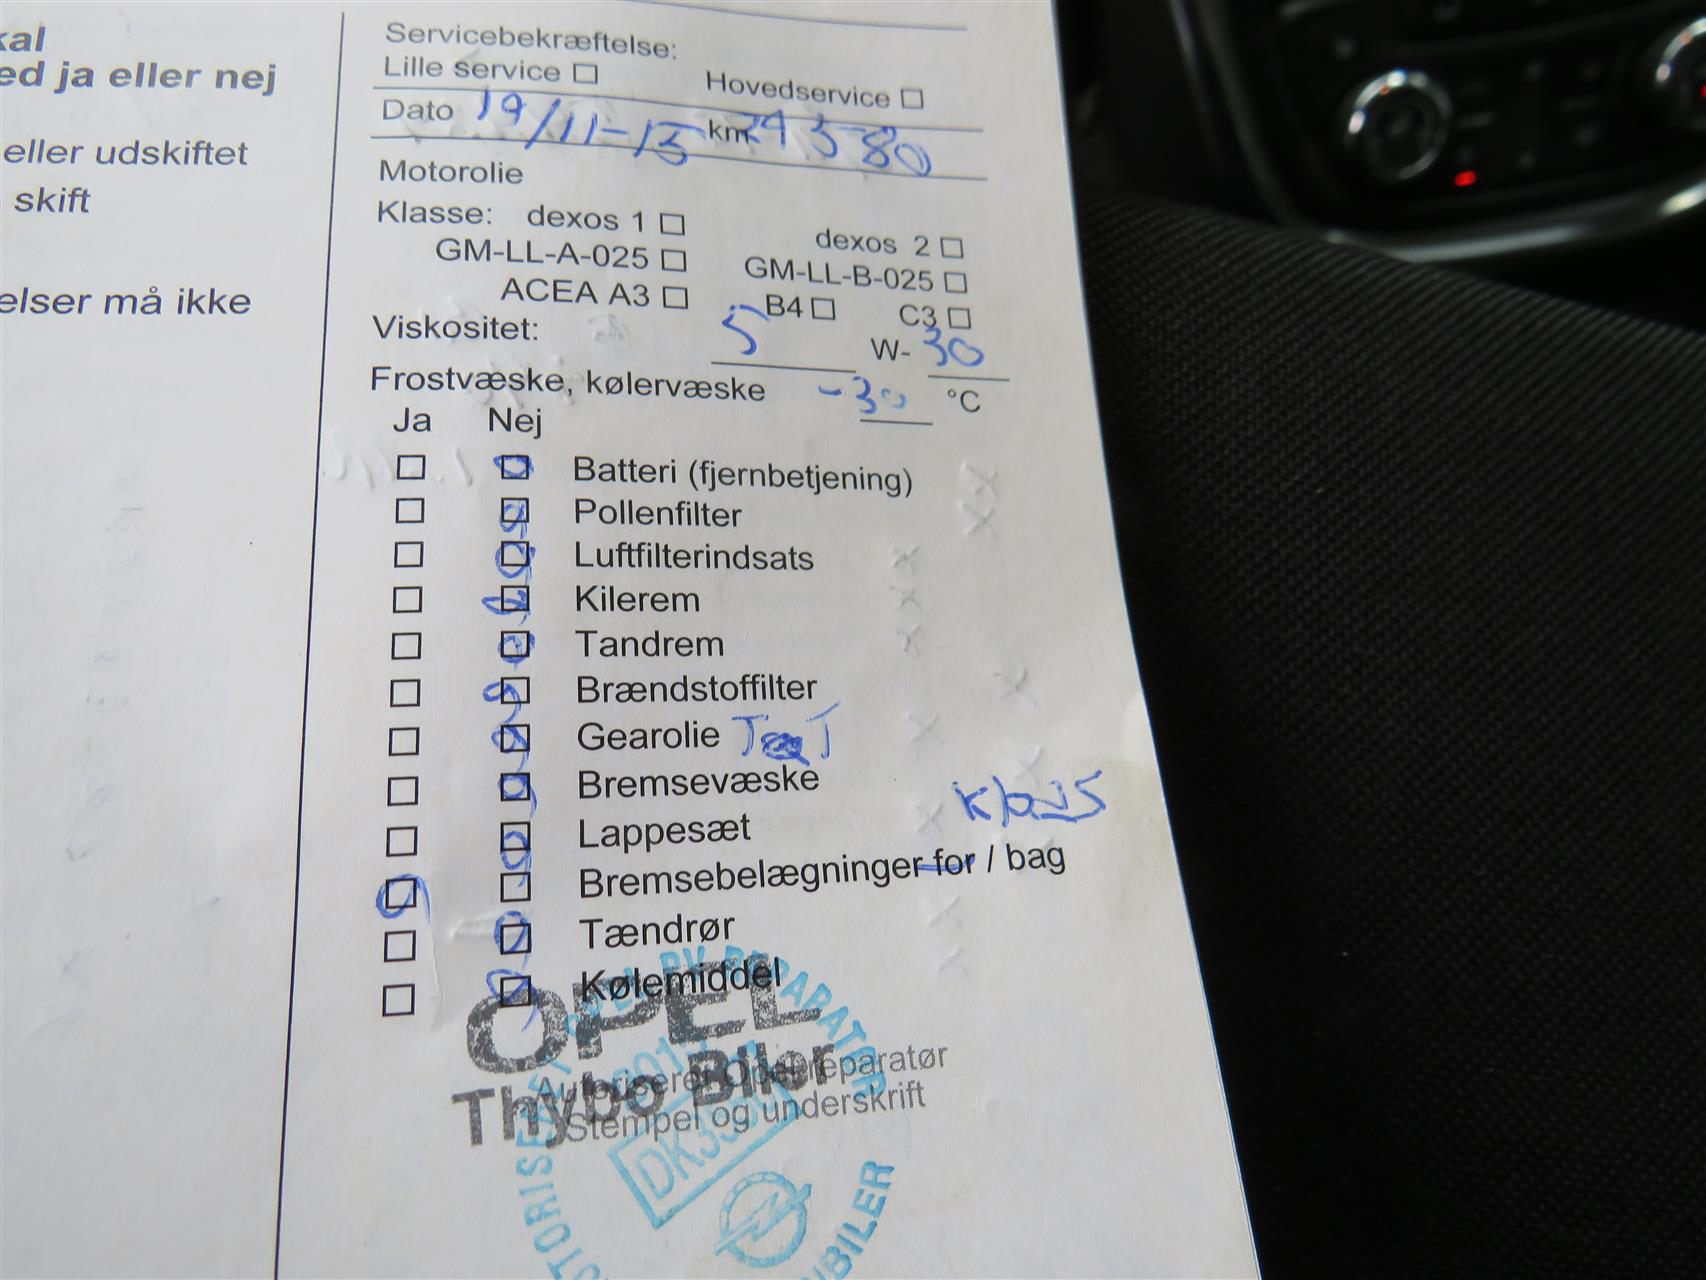 kal
ed ja eller nej
eller udskiftet
skift
elser må ikke
Servicebekræftelse:
Lille service ☐ Hovedservice ☐
Dato 19/11-15 km
Motorolie
Klasse: dexos 1 ☐ dexos 2 ☐
GM-LL-A-025 ☐ GM-LL-B-025 ☐
ACEA A3 ☐ B4 ☐ C3 ☐
Viskositet: 5 W- 30
Frostvæske, kølervæske -30 °C
Ja Nej
Batteri (fjernbetjening)
Pollenfilter
Luftfilterindsats
Kilerem
Tandrem
Brændstoffilter
Gearolie
Bremsevæske
Klaus
Lappesæt
Bremsebelægninger for / bag
Tændrør
Kølemiddel
OPEL
Thybo Biler
Autoriseret Opel reparatør
Stempel og underskrift